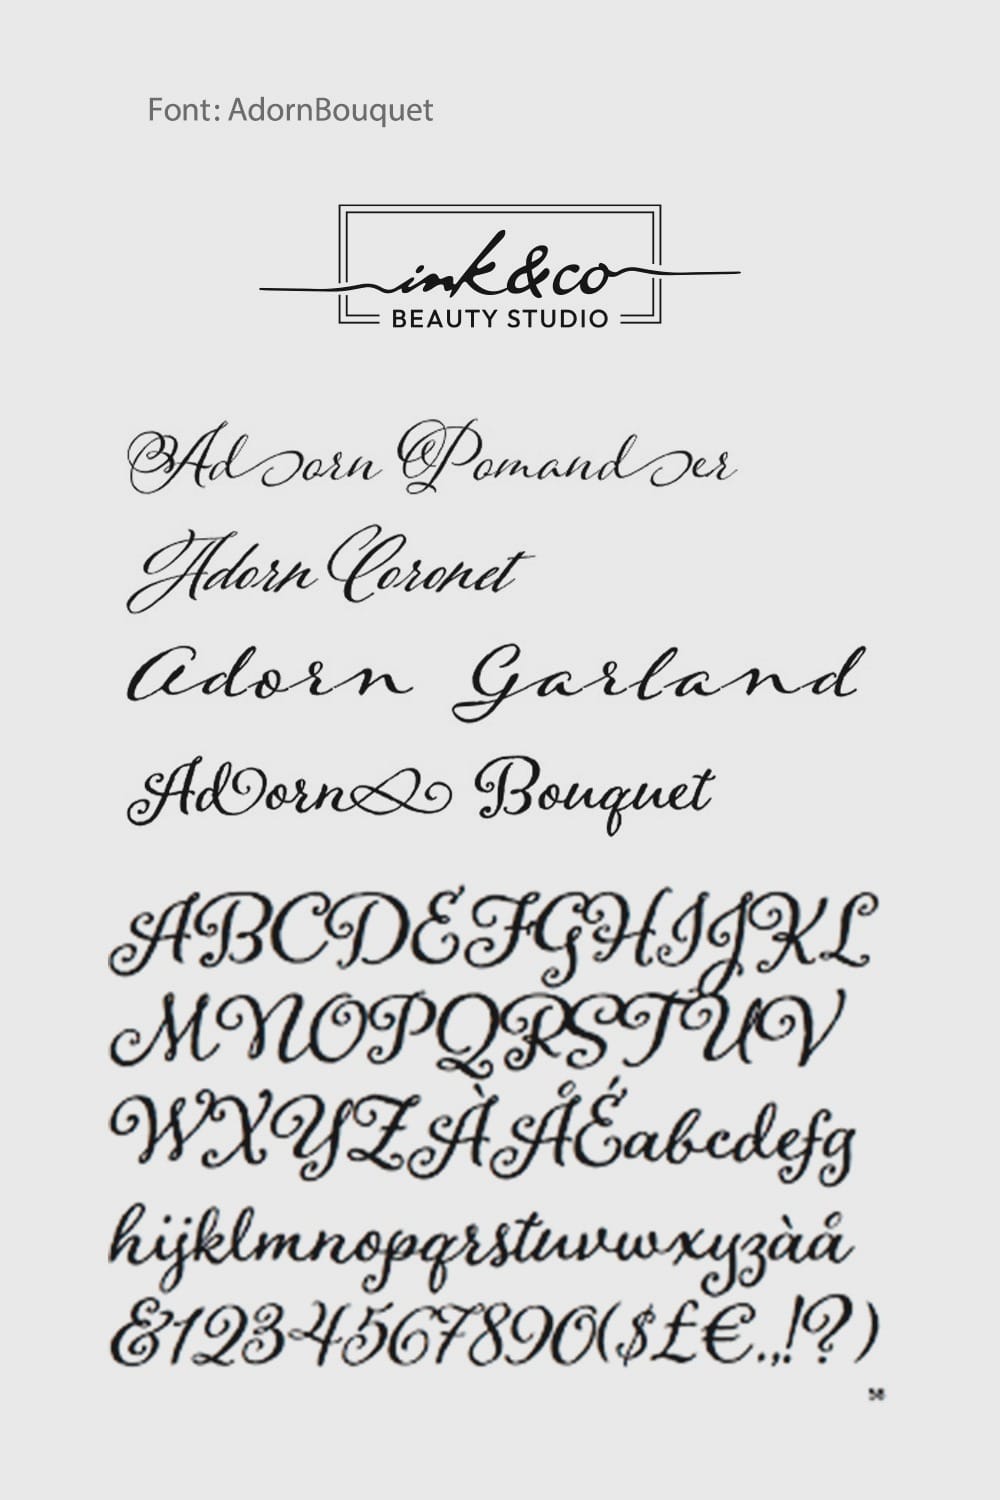 Font: AdornBouquet
ink&co
BEAUTY STUDIO
Adorn Pomander
Adorn Coronet
Adorn Garland
Adorn Bouquet
ABCDEFGHIJKL
MNOPQRSTUV
WXYZÀÅÉabcdefg
hijklmnopqrstuvwxyzàå
&1234567890($£€.,!?)